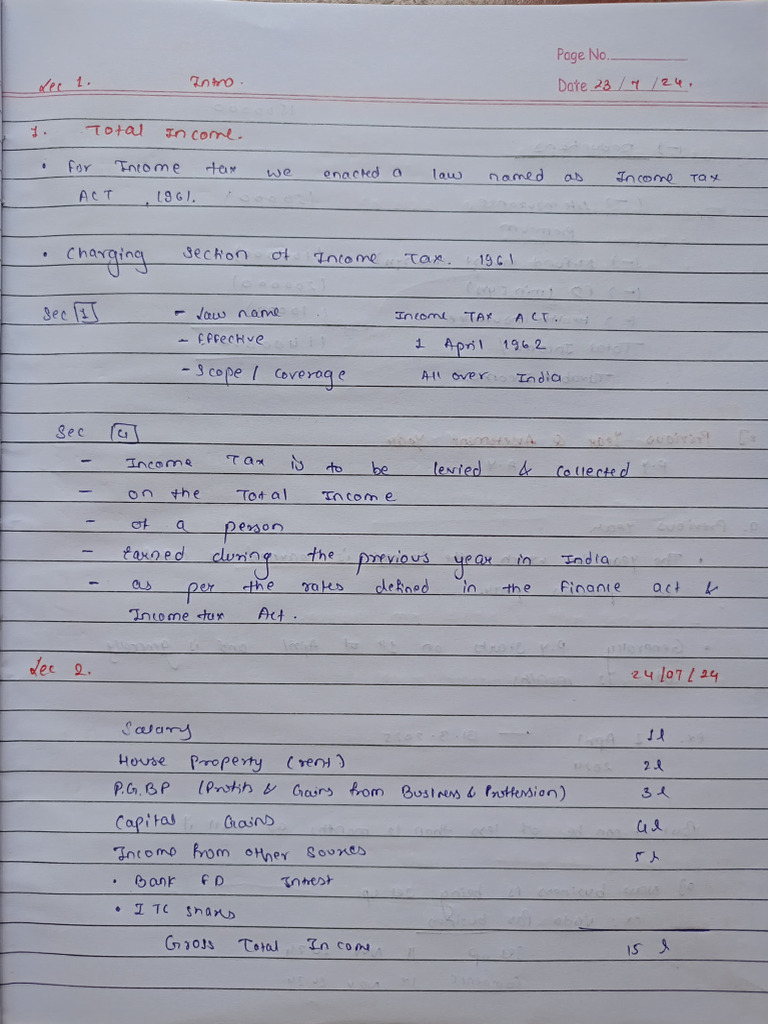 Page No.
Lec 1. Intro.
Date 23 / 7 / 24.
1. Total Income.
• For Income tax we enacted a law named as Income Tax
ACT , 1961.
• Charging section of Income Tax. 1961
Sec 1 - Law name Income TAX ACT.
- Effective 1 April 1962
- Scope / Coverage All over India
Sec 4
- Income Tax is to be levied & collected
- on the Total Income
- of a person
- Earned during the previous year in India
- as per the rates defined in the Finance act &
Income tax Act.
Lec 2. 24/07/24
Salary 1l
House Property (rent) 2l
P.G.BP (Profits & Gains from Business & Proffersion) 3l
Capital Gains 4l
Income from other Sources 5l
• Bank FD Intrest
• ITC shares
Gross Total Income 15 l